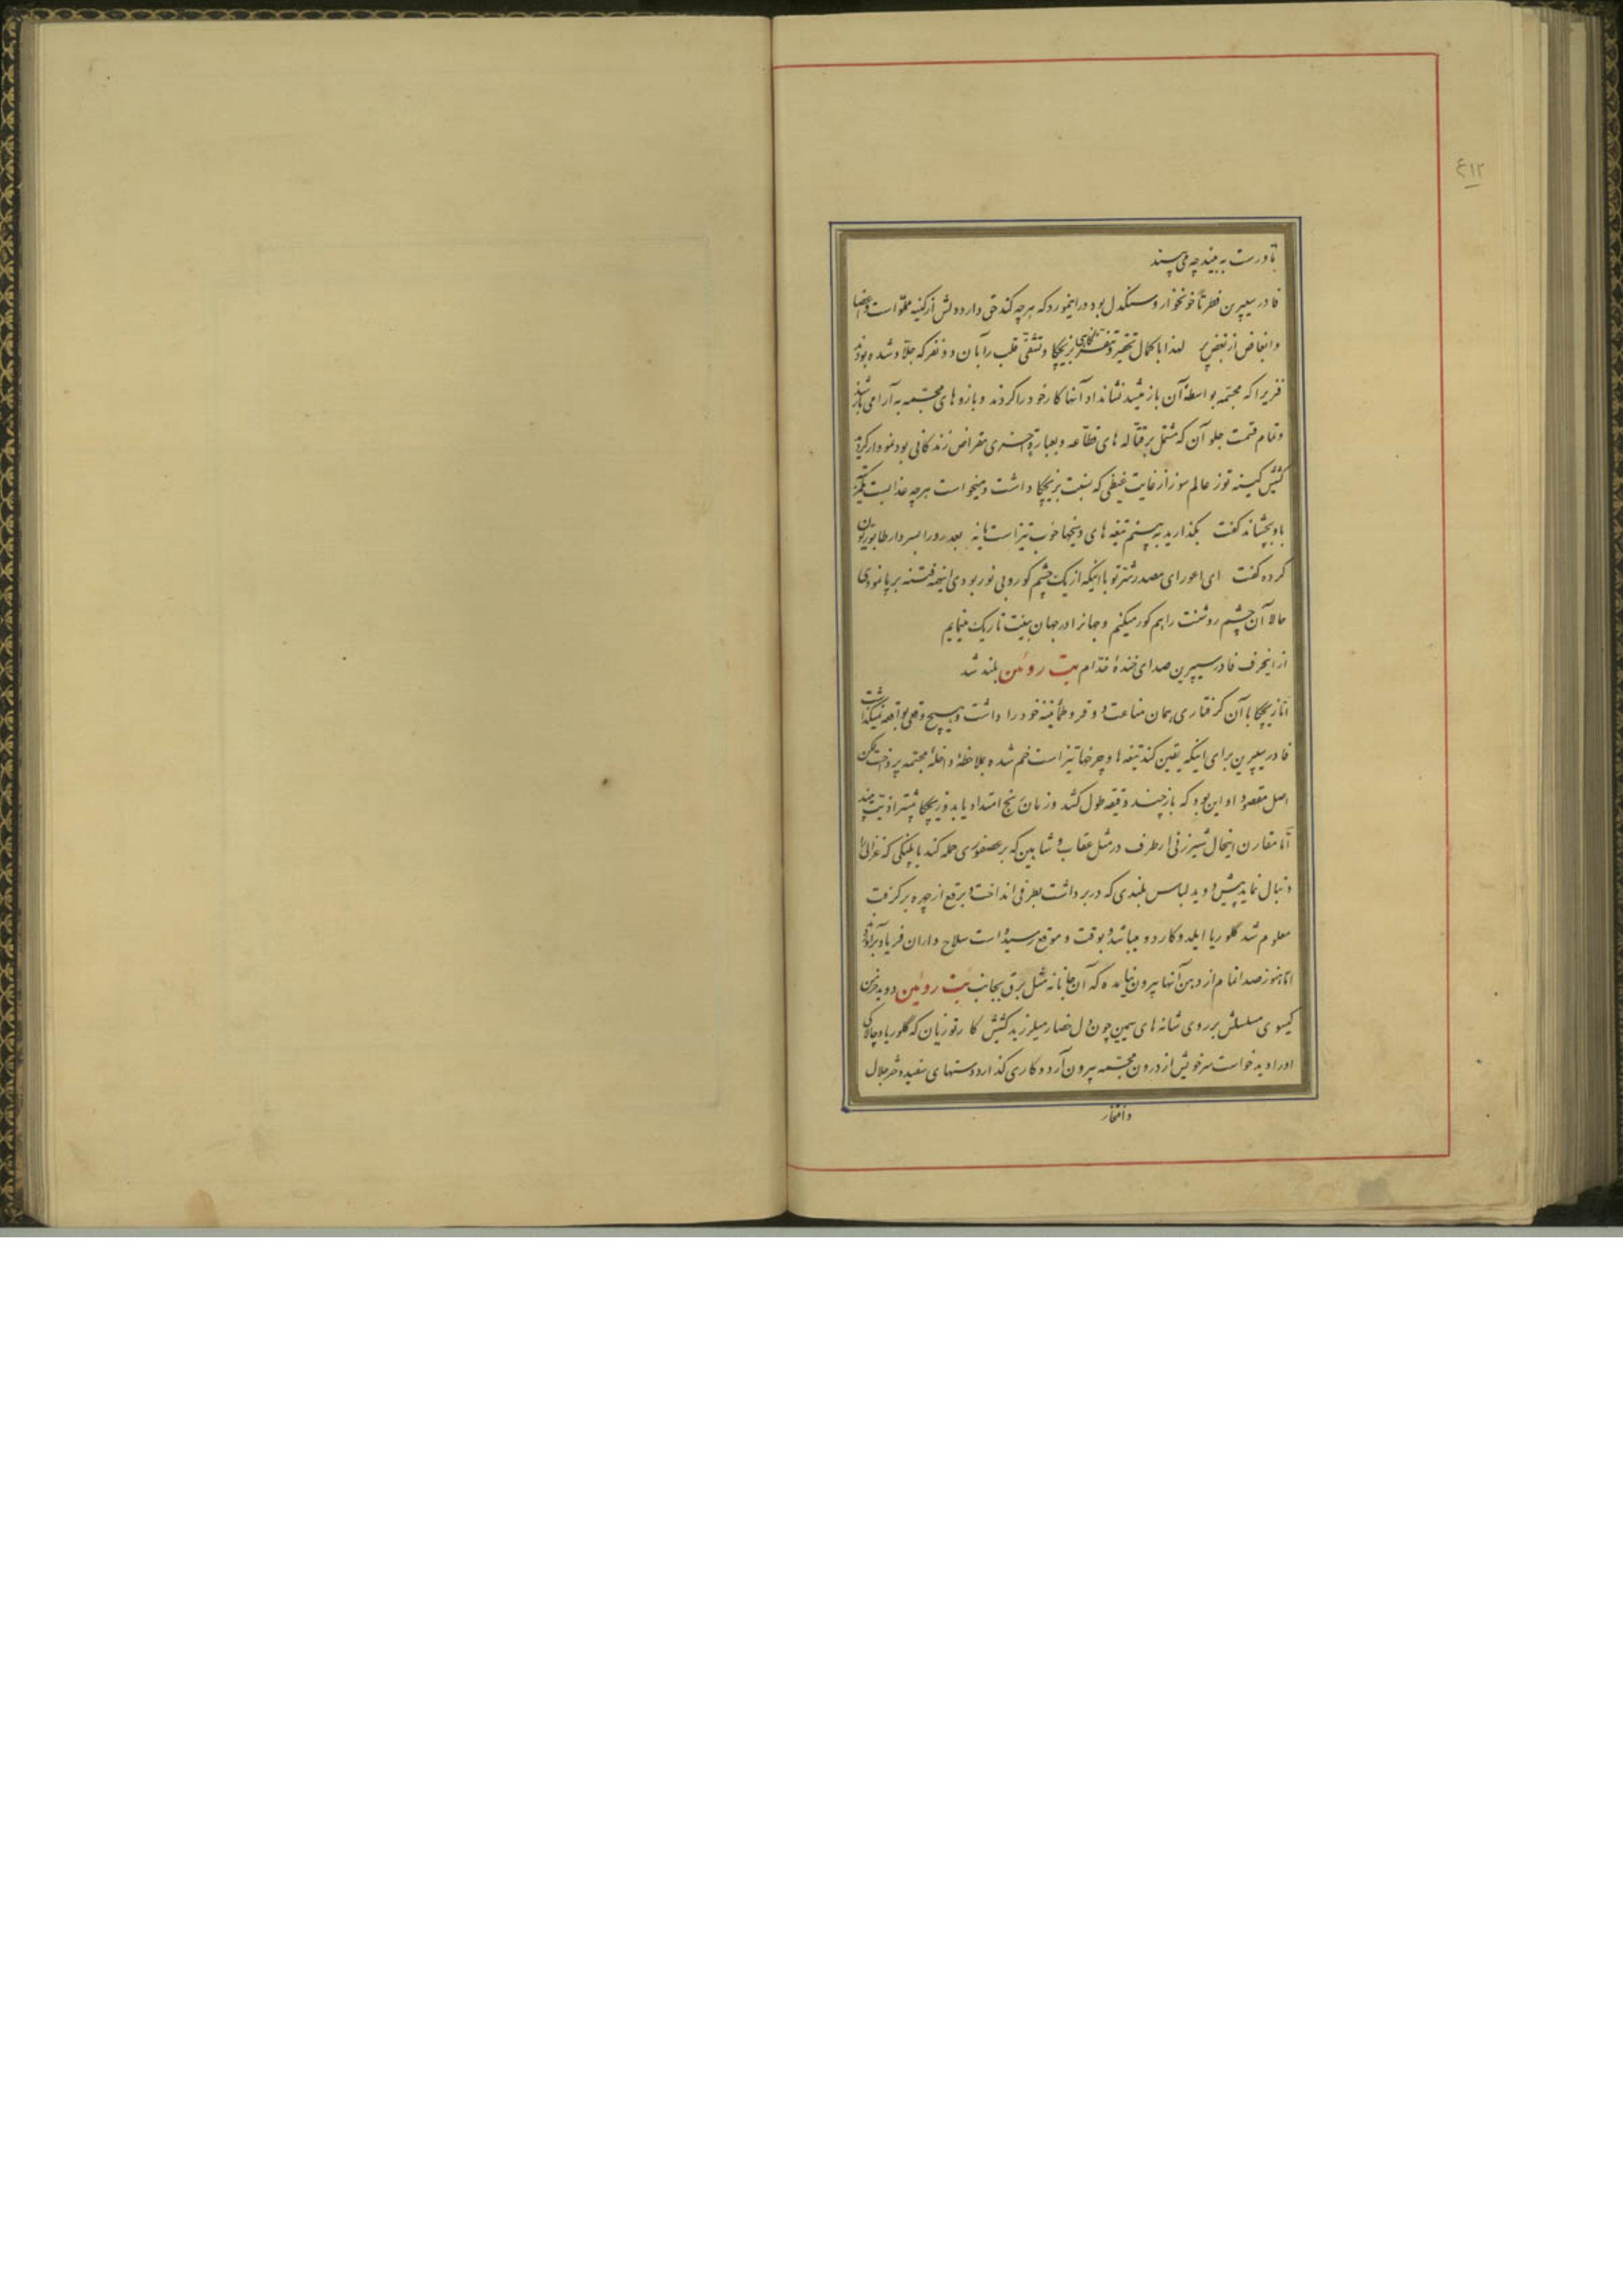 ۴۱۲
تا درست به بیند چه می پسند
فادر سیپرین فطرتاً خونخوار و سنگدل بود در اینمورد که هرچه کند حق دارد و دلش از کینه مملو است و اعضا
و انعاض از بغض پر لهذا با کمال تحقیر و تمسخر نگاهی بزیچکا و تشفی قلب را بآن دو نفر که جلاد شده بودند
فنریرا که مجتمه بواسطهٔ آن باز میشد نشانداد آنها کار خود را کردند و بازوهای مجسمه به آرامی باز شد
و تمام قسمت جلو آن که مشتمل بر قتاله های قطاعه و بعبارة اخری مقراض زندگانی بود نمودار گردید
کشیش کینه توز عالم سوز از غایت غیظی که نسبت بزیچکا داشت و میخواست هرچه عذابست
باو بچشاند گفت بگذارید به بینم تیغه های و میخها خوب تیز است یا نه بعد رو را بسردار طابوریون
کرده گفت ای اعور ای مصدر شر تو با اینکه از یک چشم کور و بی نور بودی اینهمه فتنه برپا نمودی
حالا آن چشم روشنت را هم کور میکنم و جهانرا در جهان بینت تاریک مینمایم
از اینحرف فادر سیپرین صدای خندهٔ خدام بت روئین بلند شد
اما زیچکا با آن گرفتاری همان مناعت و وقر و طمأنینه خود را داشت و هیچ وقعی بواقعه نمیگذاشت
فادر سیپرین برای اینکه یقین کند تیغه ها و چرخها تیز است خم شده بملاحظهٔ داخلهٔ مجتمه پرداخت لکن
اصل مقصود او این بود که باز چند دقیقه طول کشد و زمان رنج امتداد یابد و زیچکا بیشتر اذیت بیند
اما مقارن اینحال شیرزنی از طرف در مثل عقاب و شاهین که بر عصفوری حمله کند یا پلنگی که غزالی را
دنبال نماید پیش دوید لباس بلندی که در بر داشت بطرفی انداخت و برقع از چهره برگرفت
معلوم شد گلوریا ایلدوکاردو میباشد و بوقت و موقع رسیده است سلاح داران فریاد برآوردند
اما هنوز صدا تمام از دهن آنها بیرون نیامده که آن جانانه مثل برق بجانب بت روئین دوید خرمن
گیسوی مسلسلش بر روی شانه های سیمین چون دل نضار میلرزید کشیش کارتوزیان که گلوریا و چالاکی
او را دید خواست سر خویش از درون مجتمه بیرون آرد و کاری کند اما دستهای سفید دختر جلال
و افتخار